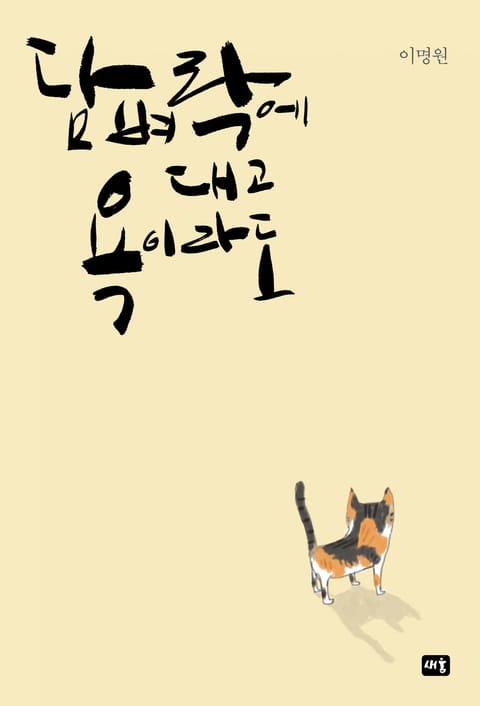 이명원
담벼락에
대고
욕이라도
새움